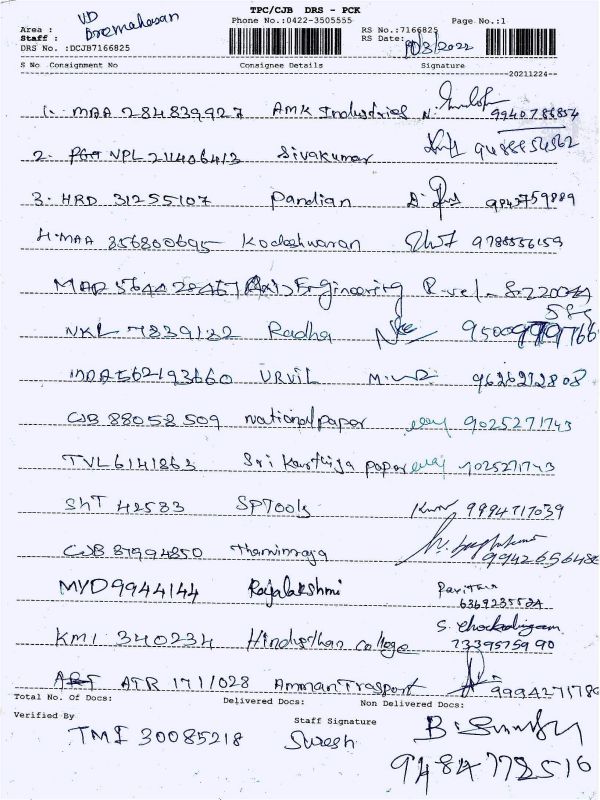 TPC/CJB DRS - PCK
Phone No.:0422-3505555 Page No.:1
VD
Area :
Staff : Premahasan
RS No.:7166825
RS Date: 10/3/2022
DRS No. :DCJB7166825
S No Consignment No Consignee Details Signature
20211224
1. MAA 284839927 AMK Industries N. 9940786854
2. NPL 211406413 Sivakumar 9488854562
3. HRD 31255107 Pandian 9842759889
4. MAA 356800695 Kodeshwaran 9788556159
MAA 564428467 Axis Engineering R.vel - 822004
585
NKL 7839132 Radha 9500979766
MAA562193660 URVIL 9626272808
CJB 88058509 national paper 9025271743
TVL6141863 Sri Karthija paper 9025271743
SHT 42583 SPTools 9994717039
CJB 87994850 Thamimraja 9942656480
MYD9944144 Rajalakshmi Pavithra
6369235524
KMI 340234 Hindusthan college S. Chockalingam
7339575990
ATR 1711028 Amman Trasport 9994271780
Total No. Of Docs: Delivered Docs: Non Delivered Docs:
Verified By Staff Signature
TMI 30085218 Suresh
9484778516